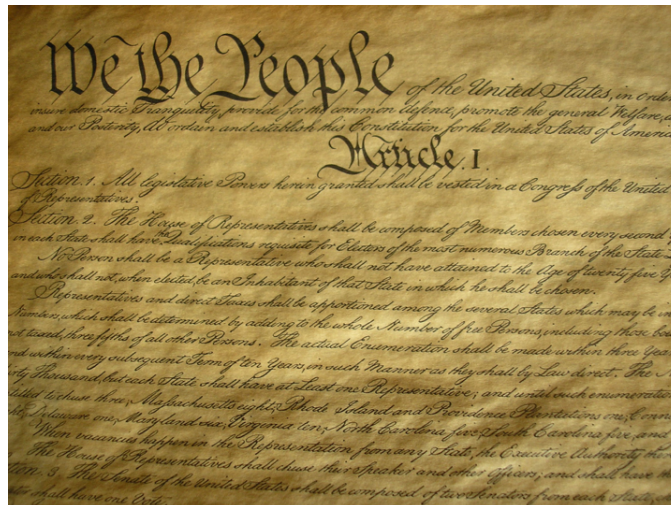 We the People of the United States, in Orde
insure domestic Tranquility, provide for the common defence, promote the general Welfare, a
and our Posterity, do ordain and establish this Constitution for the United States of America
Article. I
Section. 1. All legislative Powers herein granted shall be vested in a Congress of the United
of Representatives.
Section. 2. The House of Representatives shall be composed of Members chosen every second
in each State shall have Qualifications requisite for Electors of the most numerous Branch of the State
No Person shall be a Representative who shall not have attained to the Age of twenty five
and who shall not, when elected, be an Inhabitant of that State in which he shall be chosen.
Representatives and direct Taxes shall be apportioned among the several States which may be in
Numbers, which shall be determined by adding to the whole Number of free Persons, including those bou
not taxed, three fifths of all other Persons. The actual Enumeration shall be made within three Year
and within every subsequent Term of ten Years, in such Manner as they shall by Law direct. The N
irty Thousand, but each State shall have at Least one Representative; and until such enumeratio
titled to chuse three, Massachusetts eight, Rhode Island and Providence Plantations one, Conn
ht, Delaware one, Maryland six, Virginia ten, North Carolina five, South Carolina five, and
When vacancies happen in the Representation from any State, the Executive Authority there
The House of Representatives shall chuse their Speaker and other Officers; and shall have
ction. 3. The Senate of the United States shall be composed of two Senators from each State, ch
ator shall have one Vote.